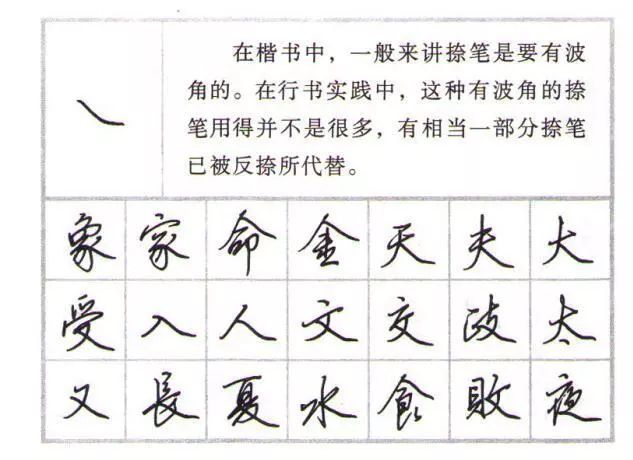 在楷书中，一般来讲捺笔是要有波
角的。在行书实践中，这种有波角的捺
笔用得并不是很多，有相当一部分捺笔
已被反捺所代替。
象 家 命 金 天 夫 大
受 入 人 文 交 太
又 長 夏 水 食 敗 夜